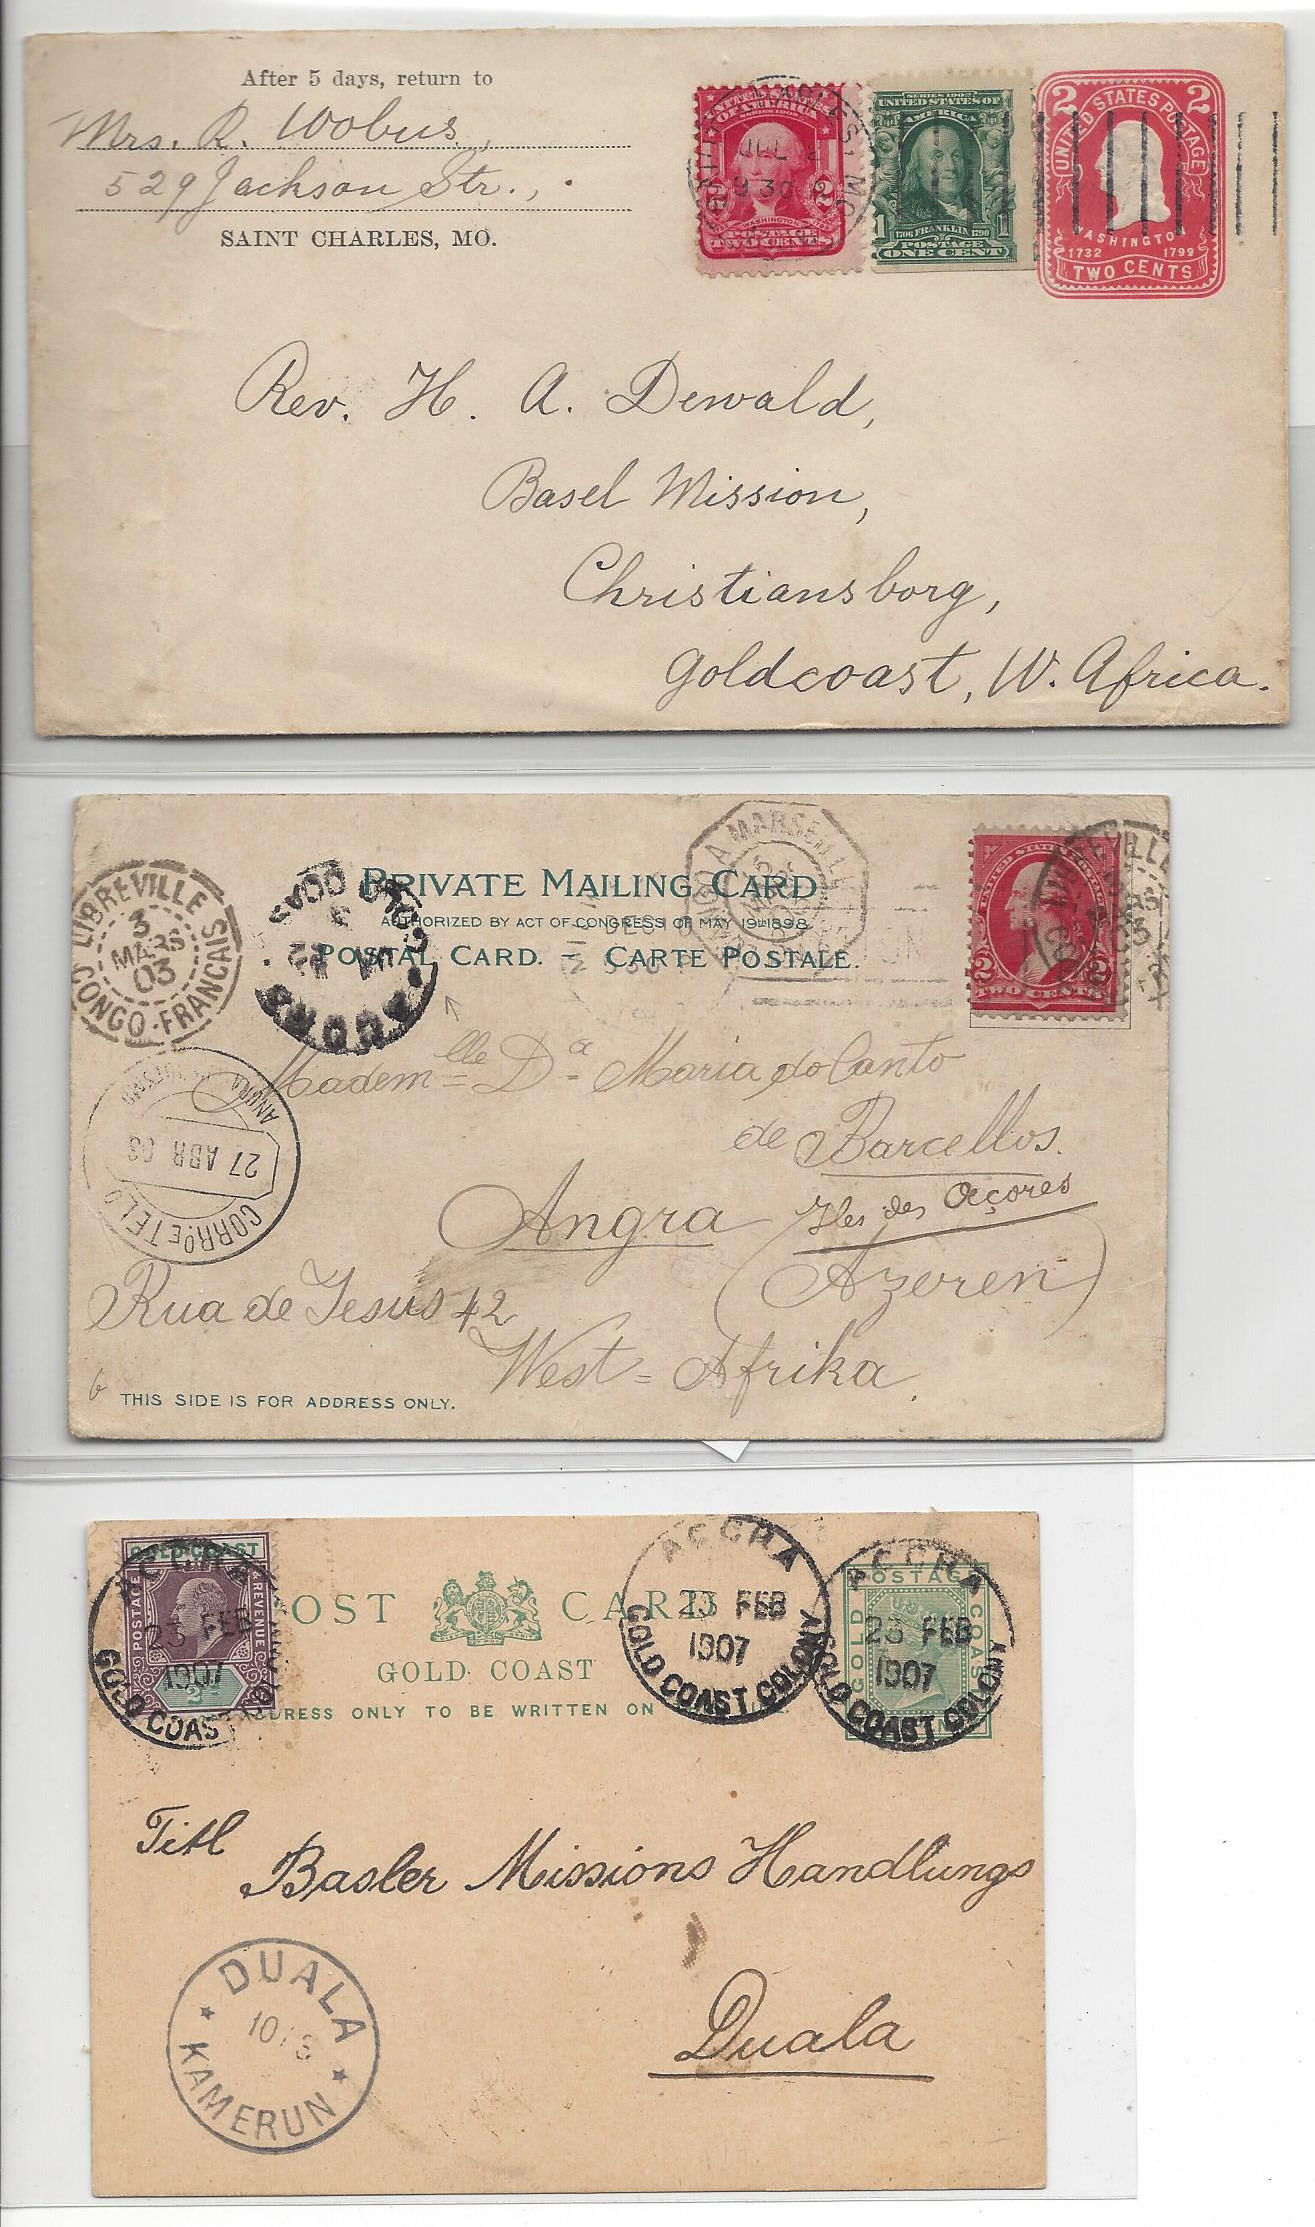 After 5 days, return to
Mrs. R. Wobus,
529 Jackson Str.,
SAINT CHARLES, MO.
JUL 2
9 30
UNITED STATES
OF AMERICA
SERIES 1902
WASHINGTON
POSTAGE
2 TWO CENTS 2
SERIES 1902
UNITED STATES OF
AMERICA
1706 FRANKLIN 1790
1 POSTAGE 1
ONE CENT
2 UNITED STATES POSTAGE 2
WASHINGTON
1732 1799
TWO CENTS
Rev. H. A. Dewald,
Basel Mission,
Christiansborg,
Goldcoast, W. Africa.
LIBREVILLE
3
MARS
03
CONGO-FRANCAIS
PRIVATE MAILING CARD
AUTHORIZED BY ACT OF CONGRESS OF MAY 19TH 1898
POSTAL CARD. — CARTE POSTALE.
A MARSEILLE
UNITED STATES POSTAGE
2 2
TWO CENTS
LIBREVILLE
MARS
03
Madem lle D a Maria do Canto
de Barcellos.
Angra Iles des Açores
(Azoren)
Rua de Jesus 42
West-Afrika.
ANGRA
27 ABR 03
CORRO E TELO
6 THIS SIDE IS FOR ADDRESS ONLY.
GOLD COAST
POSTAGE & REVENUE
ACCRA
23 FEB
1907
GOLD COAST COLONY
POST CARD
GOLD COAST
ADDRESS ONLY TO BE WRITTEN ON
ACCRA
23 FEB
1907
GOLD COAST COLONY
POSTAGE
GOLD COAST
ACCRA
23 FEB
1907
GOLD COAST COLONY
Titl
Basler Missions Handlungs
Duala
DUALA
KAMERUN